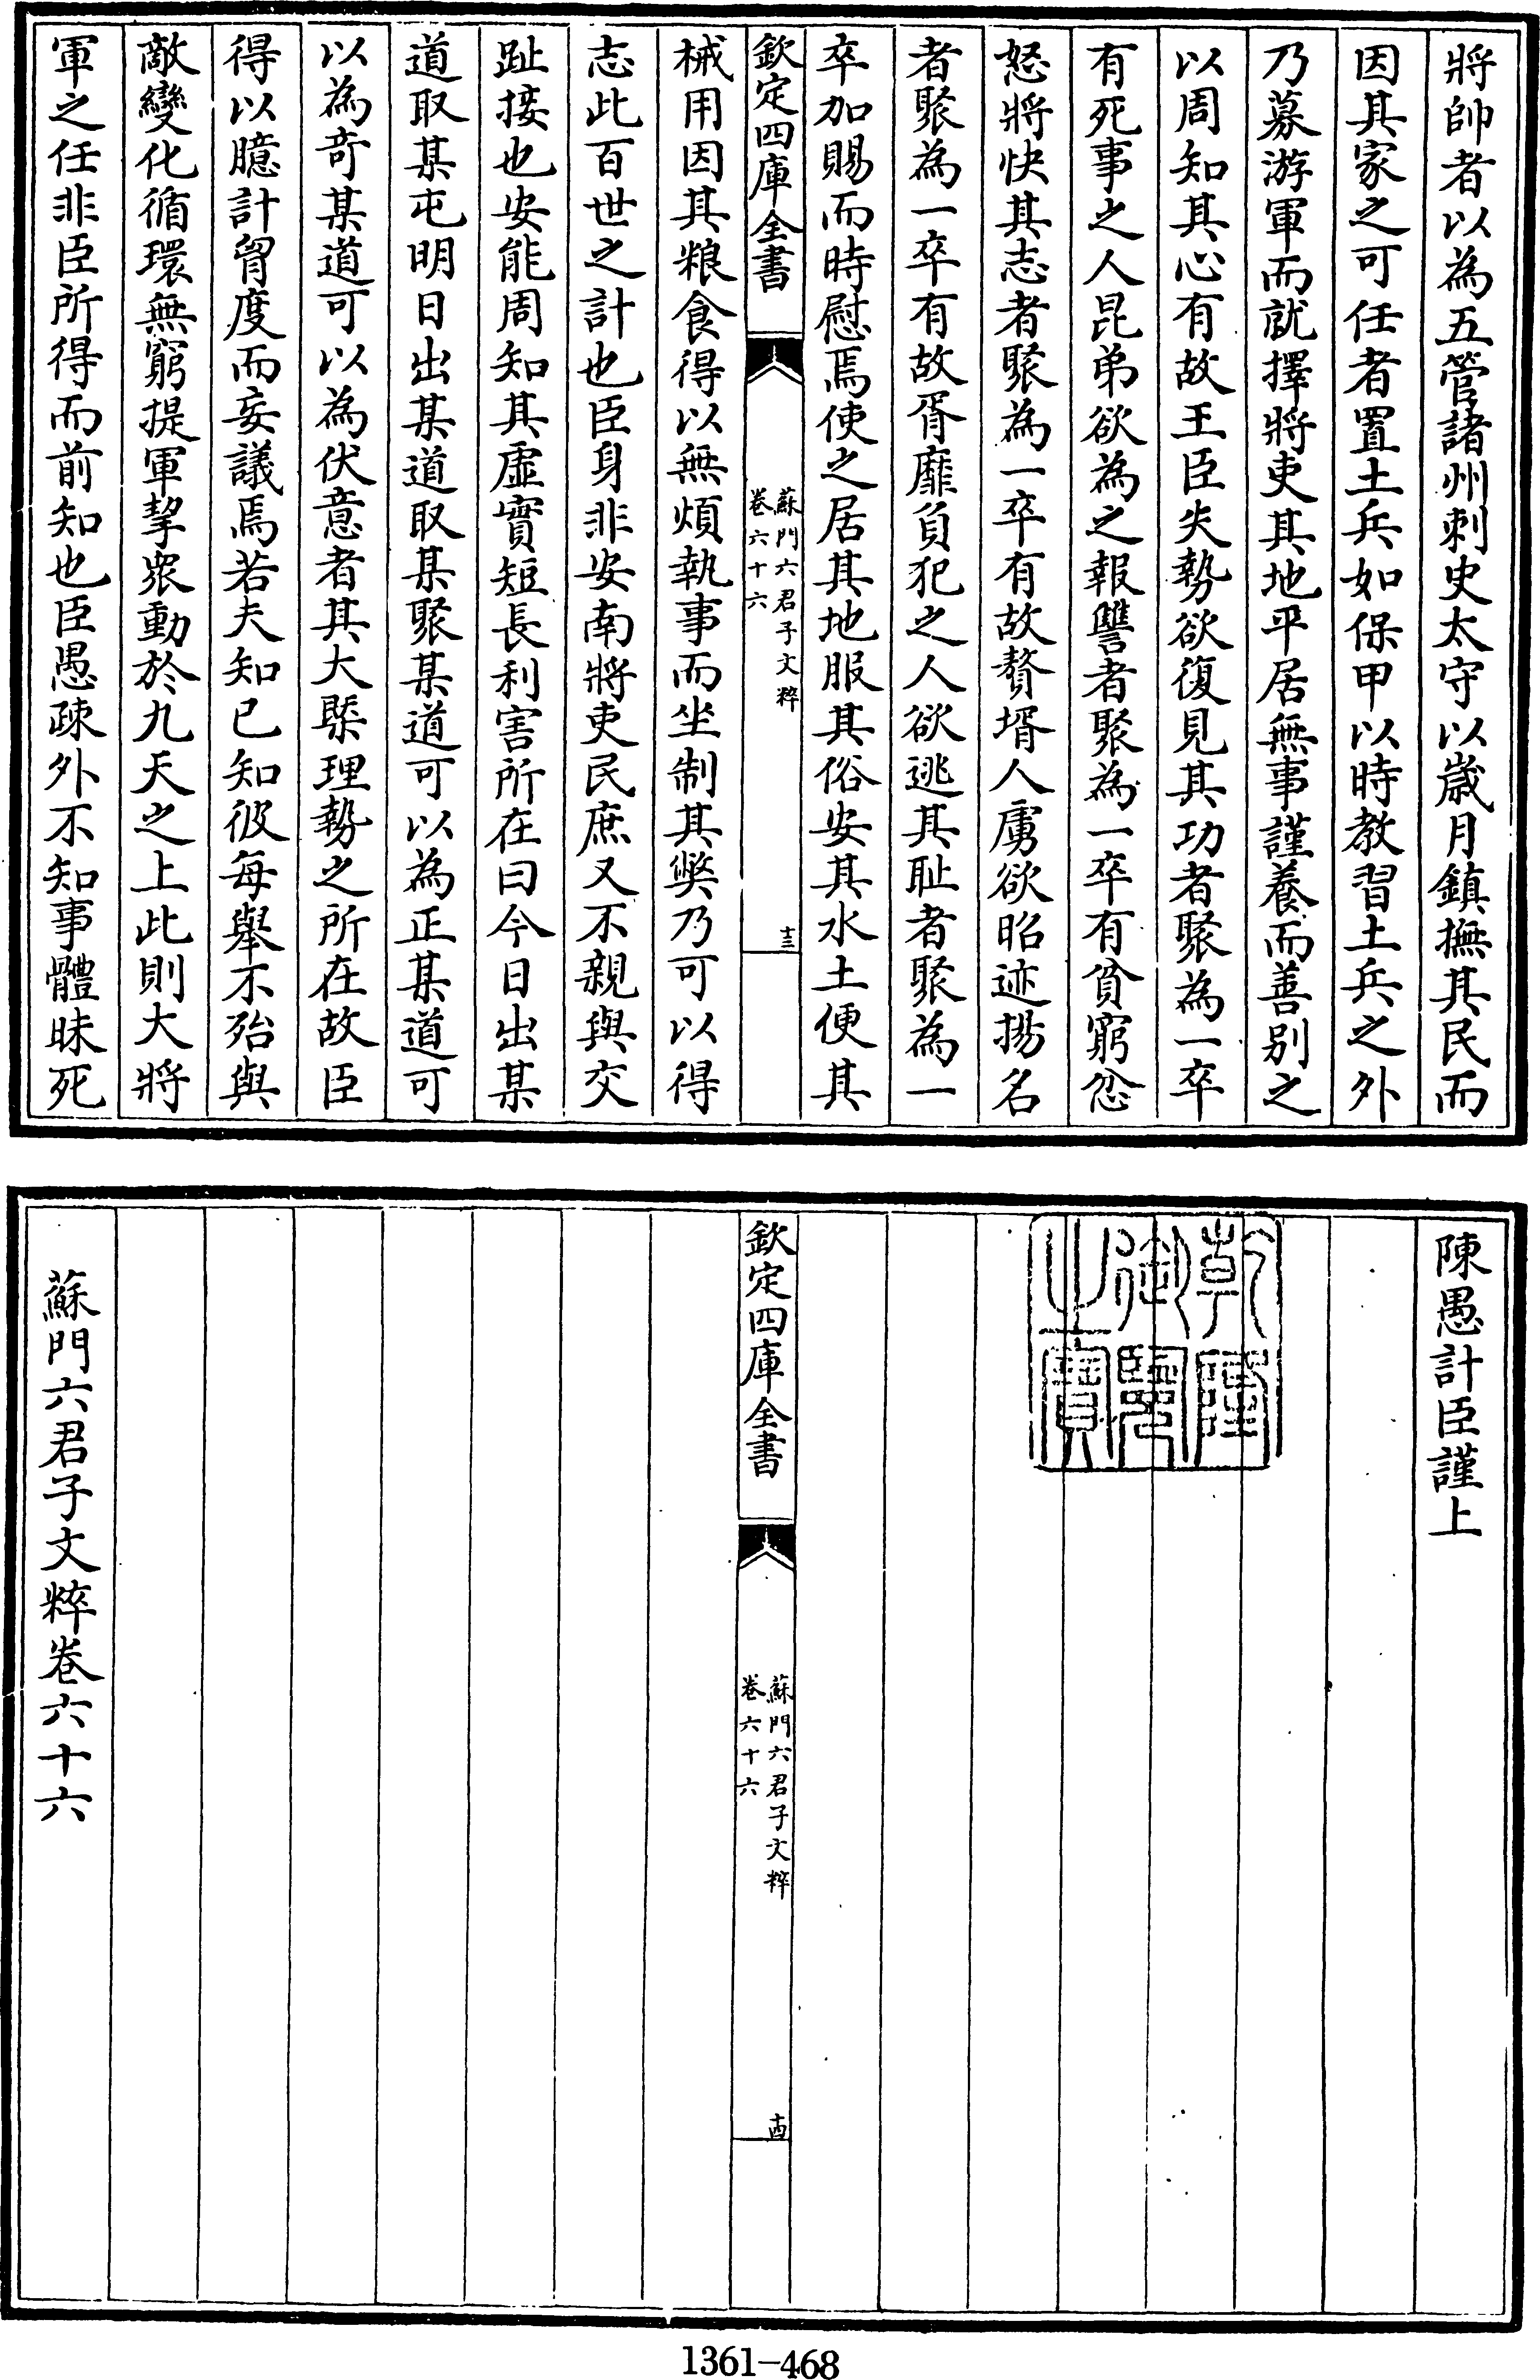 將帥者以為五管諸州刺史太守以歲月鎮撫其民而
因其家之可任者置土兵如保甲以時教習土兵之外
乃募游軍而就擇將吏其地平居無事謹養而善别之
以周知其心有故王臣失勢欲復見其功者聚為一卒
有死事之人昆弟欲為之報讐者聚為一卒有貧窮忿
怒將快其志者聚為一卒有故贅壻人虜欲昭迹揚名
者聚為一卒有故胥靡負犯之人欲逃其恥者聚為一
卒加賜而時慰焉使之居其地服其俗安其水土便其
欽定四庫全書
蘇門六君子文粹
卷六十六
十三
械用因其粮食得以無煩執事而坐制其獘乃可以得
志此百世之計也臣身非安南將吏民庶又不親與交
趾接也安能周知其虚實短長利害所在曰今日出某
道取某屯明日出某道取某聚某道可以為正某道可
以為竒某道可以為伏意者其大槩理勢之所在故臣
得以臆計胷度而妄議焉若夫知已知彼每舉不殆與
敵變化循環無窮提軍挈衆動於九天之上此則大將
軍之任非臣所得而前知也臣愚疎外不知事體昧死
陳愚計臣謹上
乾隆御覽之寶
欽定四庫全書
蘇門六君子文粹
卷六十六
十四
蘇門六君子文粹卷六十六
1361-468